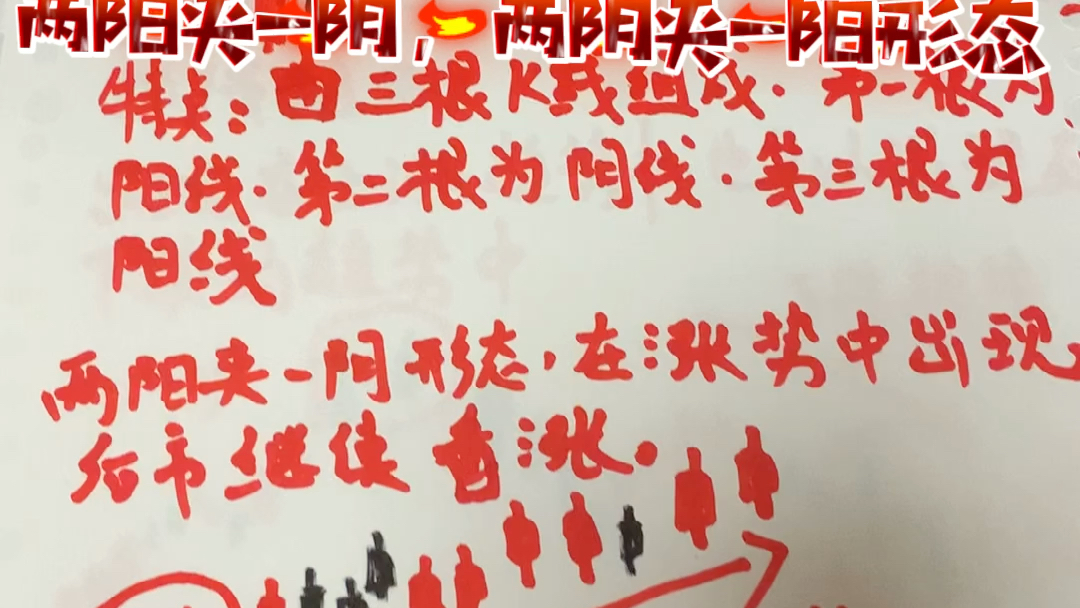 两阳夹一阴，两阴夹一阳形态
特点：由三根K线组成．第一根为
阳线．第二根为阴线．第三根为
阳线
两阳夹一阴形态，在涨势中出现，
后市继续看涨。